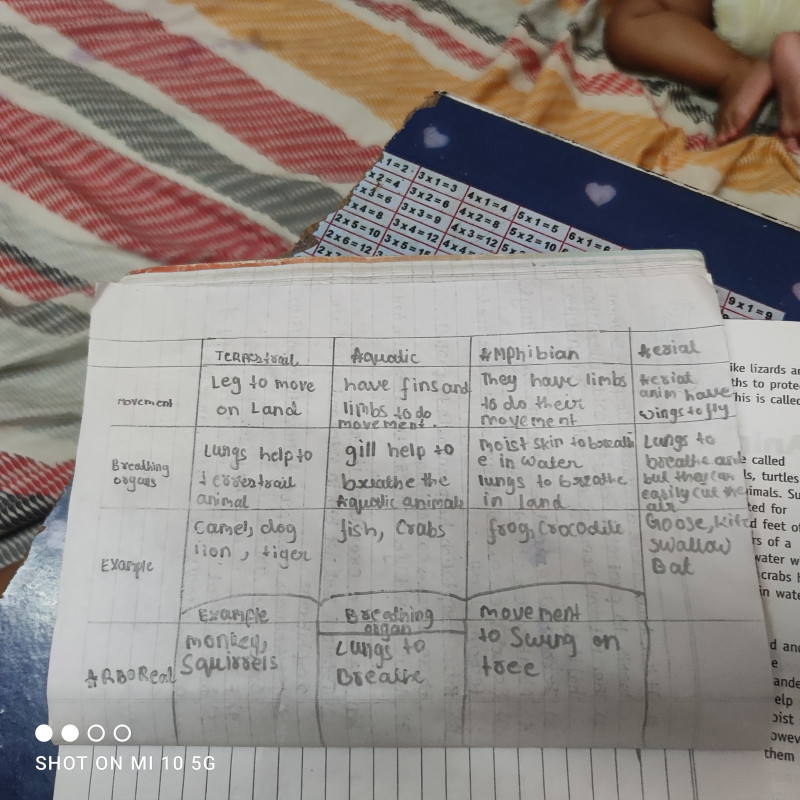 1=2 3x1=3 4x1=4 5x1=5 6x1=6
x2=4 3x2=6 4x2=8 5x2=10
x3=6 3x3=9 4x3=12
x4=8 3x4=12
2x5=10 3x5=15
2x6=12
9x1=9
TERRestrail Aquatic AMPhibian Aerial
Movement
Leg to move
on Land
have fins and
limbs to do
movement.
They have limbs
to do their
movement
Aerial
anim have
wings to fly
Breathing
organs
Lungs help to
terrestrail
animal
gill help to
breathe the
Aquatic animals
Moist skin to breath
e in water
lungs to breathe
in land
Lungs to
breathe
but they can
easily cut the
air
Example
camel, dog
lion, tiger
fish, Crabs
frog, Crocodile
Goose, kite
swallow
Bat
Example Breathing
organ
movement
ARBOReal
monkey,
Squirrels
Lungs to
Breathe
to Swing on
tree
ike lizards
ths to prote
his is calle
called
ls, turtles
imals. Su
ted for
d feet of
rs of a
water w
crabs
in wate
d and
e
ande
elp
oist
owev
them
SHOT ON MI 10 5G